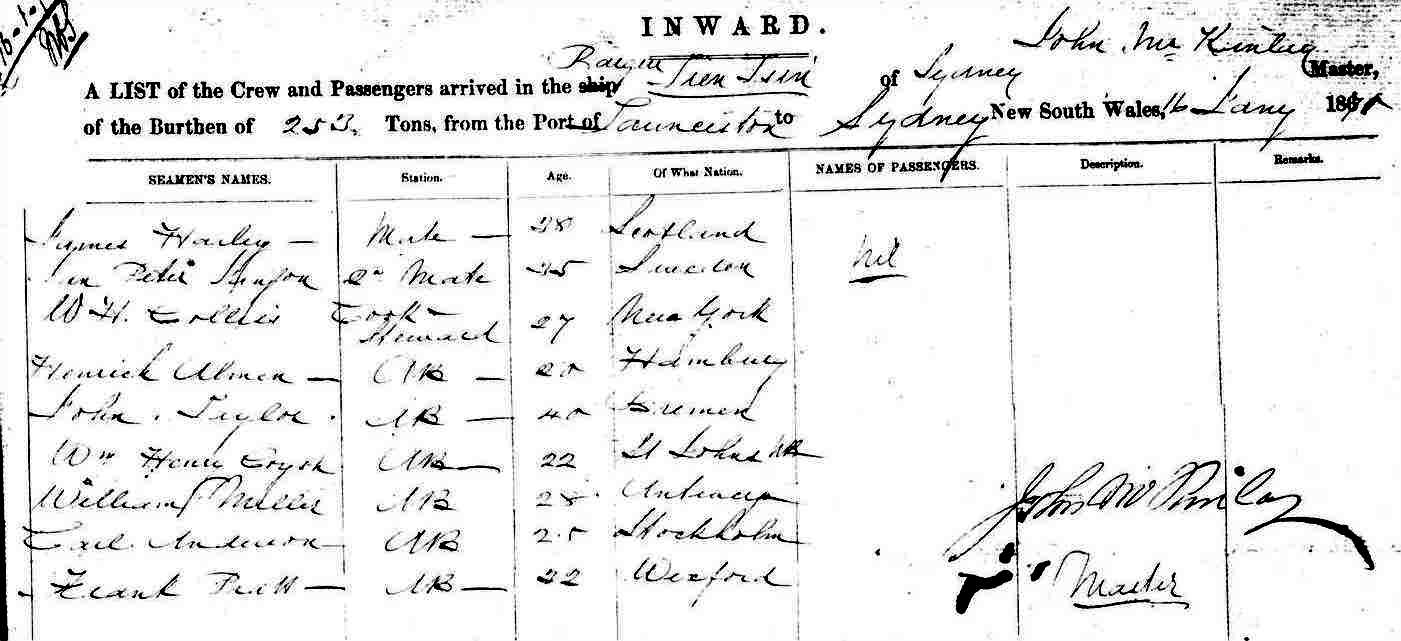 INWARD.
John Mc Kinlay
A LIST of the Crew and Passengers arrived in the ship Tien Tsin of Sydney Master,
of the Burthen of 253 Tons, from the Port of Launceston to Sydney New South Wales, 16 Jany 18
SEAMEN'S NAMES. Station. Age. Of What Nation. NAMES OF PASSENGERS. Description. Remarks.
James Harley — Mate — 38 Scotland Nil
Peter 2nd Mate 25 Sweden
W H. Collis Cook -
Steward 27 New York
Henrick Almen — AB — 20 Hamburg
John Taylor AB — 40 Bremen
Wm Henry AB — 22 St Johns NB
William Miller AB 28 Antwerp
John McKinlay
Carl Anderson AB 25 Stockholm
Frank Pratt — AB — 22 Wexford
Master